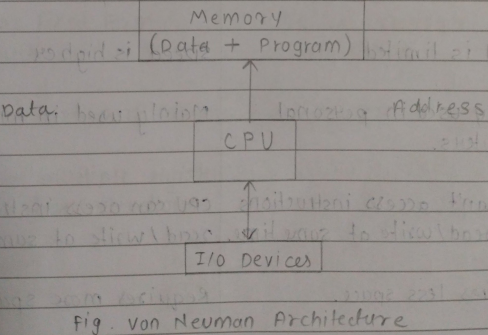 Memory
(Data + Program)
Data.
Address
CPU
I/O Devices
Fig. von Neuman Architecture